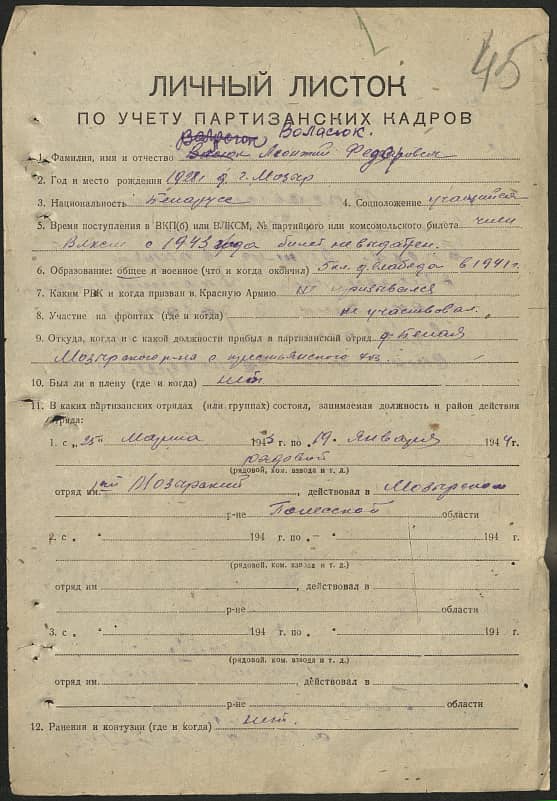 45
ЛИЧНЫЙ ЛИСТОК
ПО УЧЕТУ ПАРТИЗАНСКИХ КАДРОВ
Воласюк.
1. Фамилия, имя и отчество Леонтий Федорович
2. Год и место рождения 1928 г. г. Мозыр
3. Национальность Беларусс 4. Соцположение учащийся
5. Время поступления в ВКП(б) или ВЛКСМ, № партийного или комсомольского билета член
Влксм с 1943 года билет не выдален.
6. Образование: общее и военное (что и когда окончил) 5 кл. д. Слабода в 1941 г.
7. Каким РВК и когда призван в Красную Армию не призывался
8. Участие на фронтах (где и когда) не участвовал.
9. Откуда, когда и с какой должности прибыл в партизанский отряд д.
Мозырского р-на с крестьянского хоз.
10. Был ли в плену (где и когда) нет.
11. В каких партизанских отрядах (или группах) состоял, занимаемая должность и район действия
отряда:
1. с „25" Марта 1943 г. по „19" Января 1944 г.
рядовой
(рядовой, ком. взвода и т. д.)
отряд им. Мозарский, действовал в Мозырском
р-не Полесской области
2. с „ " 194 г. по „ " 194 г.
(рядовой, ком. взвода и т. д.)
отряд им , действовал в
р-не области
3. с „ " 194 г. по „ " 194 г.
(рядовой, ком. взвода и т. д.)
отряд им. , действовал в
р-не области
12. Ранения и контузии (где и когда) нет.